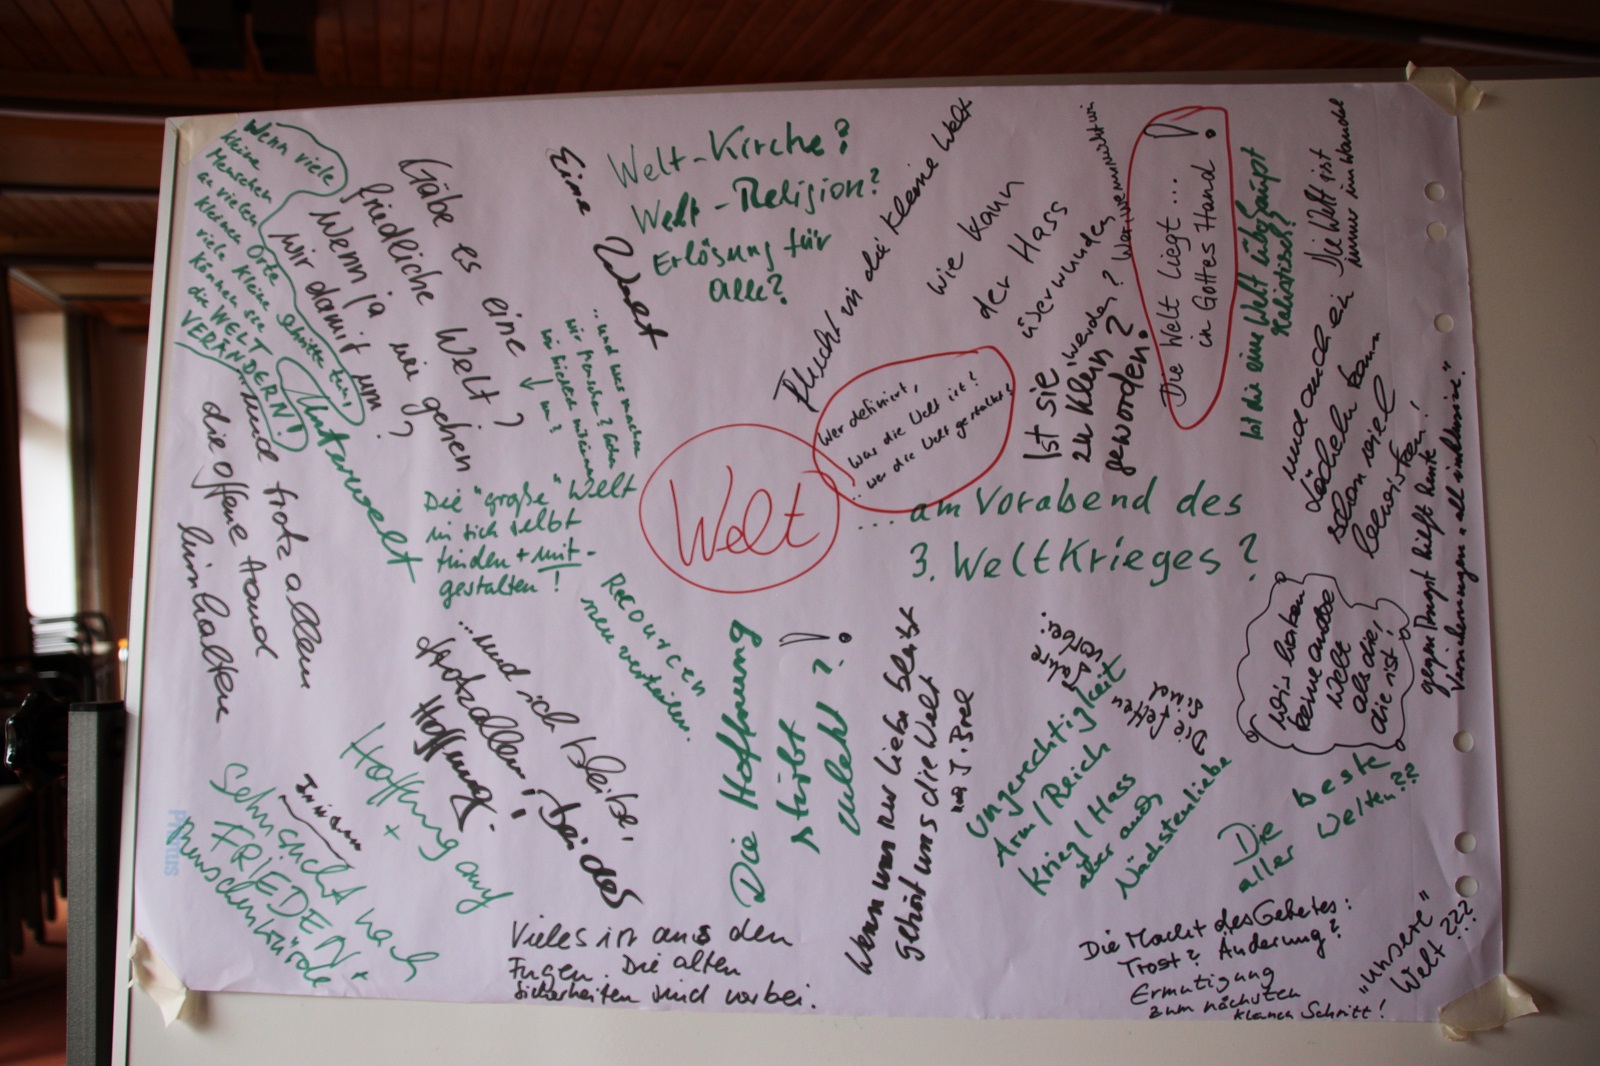 Wenn viele
kleine
Menschen
an vielen
kleinen Orte
viele kleine Schritte tun,
können sie
die WELT
VERÄNDERN!
Gäbe es eine
friedliche Welt?
Wenn ja
wie gehen
wir damit um?
Eine Welt
Welt-Kirche?
Welt-Religion?
Erlösung für
alle?
Flucht in die kleine Welt
Wie kann
der Hass
überwunden
werden?
Ist sie
zu klein
geworden?
Die Welt liegt...
in Gottes Hand!
Ist die eine Welt überhaupt
realistisch?
Die Welt ist
immer im Wandel
und auch ein
Lächeln kann
schon viel
bewirken!
gegen Angst hilft heute
"all inklusive".
...und was machen
wir Menschen?
Unterwelt
...und trotz allem
die offene Hand
hinhalten
Die "große" Welt
in sich selbst
finden + mit-
gestalten!
Welt
Wer definiert,
was die Welt ist?
... wer die Welt gestaltet?
... am Vorabend des
3. Weltkrieges?
Recourcen
neu verteilen.
...und ich bleibe,
trotz allem, bei der
Hoffnung.
Die Hoffnung
stirbt
zuletzt?!
Wenn uns nur Liebe bleibt
gehört uns die Welt
J. Brel
Die fetten
Jahre
sind
vorbei.
Ungerechtigkeit
Arm/Reich
Krieg/Hass
aber auch
Nächstenliebe
Wir haben
keine andere
Welt
als die,
die ist!
Die beste
aller Welten??
Hoffnung auf
+
Sehnsucht nach
FRIEDEN +
Menschenwürde
Vieles ist aus den
Fugen. Die alten
Sicherheiten sind vorbei.
Die Macht des Gebetes:
Trost? Änderung?
Ermutigung
zum nächsten
kleinen Schritt!
"unsere"
Welt???